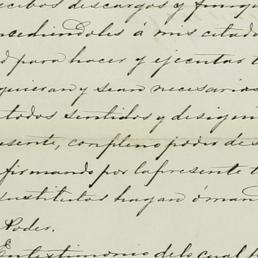 recibos descargos y finiqu
ncediendoles á mis citado
d para hacer y ejecutar t
quieran y sean necesarios
todos sentidos y designi
esente, con pleno poder de s
firmando por la presente t
substitutos hagan ó man
Poder.
En testimonio de lo cual f